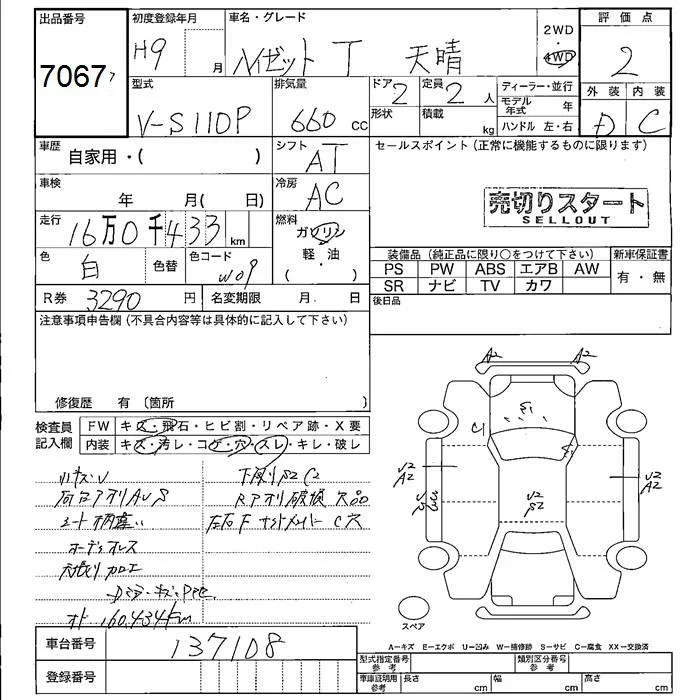 出品番号
7067
初度登録年月
H9 月
車名・グレード
ハイゼット T 天晴
2WD
4WD
評価点
2
外装 内装
D C
型式
V-S110P
排気量
660 cc
ドア 2
形状
定員 2 人
積載 kg
ディーラー・並行
モデル年式 年
ハンドル 左・右
車歴
自家用・( )
シフト
AT
セールスポイント (正常に機能するものに限ります)
車検
年 月( 日)
冷房
AC
売切りスタート
SELLOUT
走行
16万0千433 km
燃料
ガソリン
軽・油
( )
色
白
色替
色コード
W09
装備品 (純正品に限り○をつけて下さい)
新車保証書
PS PW ABS エアB AW
SR ナビ TV カワ
有・無
R券 3290 円
名変期限 月 日
後日品
注意事項申告欄 (不具合内容等は具体的に記入して下さい)
修復歴 有 〔箇所 〕
検査員
記入欄
FW キズ・飛石・ヒビ割・リペア跡・X要
内装 キズ・汚レ・コゲ・穴・スレ・キレ・破レ
小キズU
下廻りS2 C2
Rアオリ破損 欠品
シート柄違い
左右F サイドメンバー C穴
オーディオレス
加工
160,434km
A2 A2
S1
C1
U2
A2
U2
S2
U2
A2
スペア
A―キズ E―エクボ U―凹み W―補修跡 S―サビ C―腐食 XX―交換済
車台番号
137108
登録番号
型式指定番号
参考
類別区分番号
参考
車庫証明用
参考
長さ cm 幅 cm 高さ cm